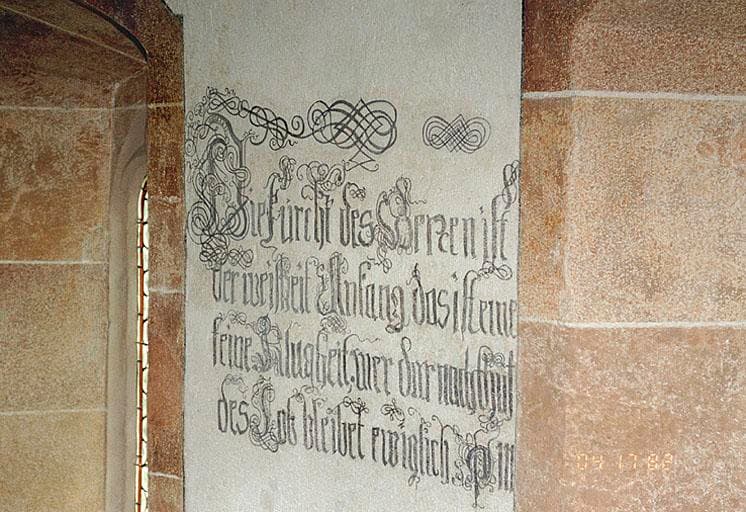 Die fürcht des Herren ist
der weisheit Anfang das ist eine
feine Klugheit, wer dar nach thut
des Lob bleibet ewiglich. P. III
04 17 88